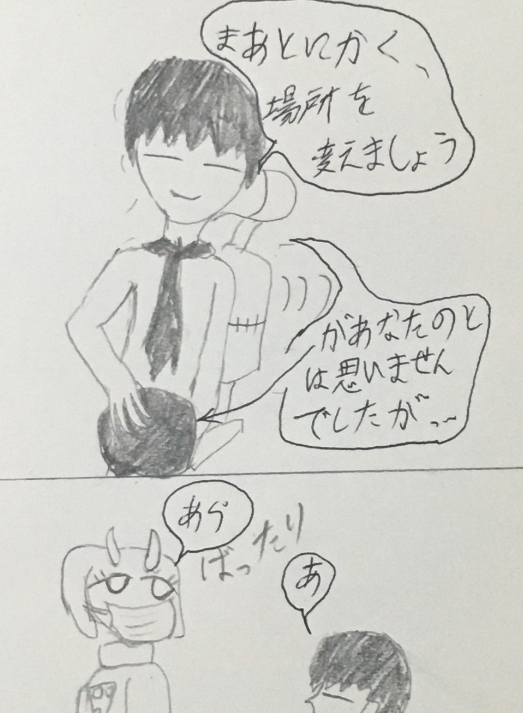 まあとにかく、
場所を
変えましょう
があなたのと
は思いません
でしたが…
あら
ばったり
あ